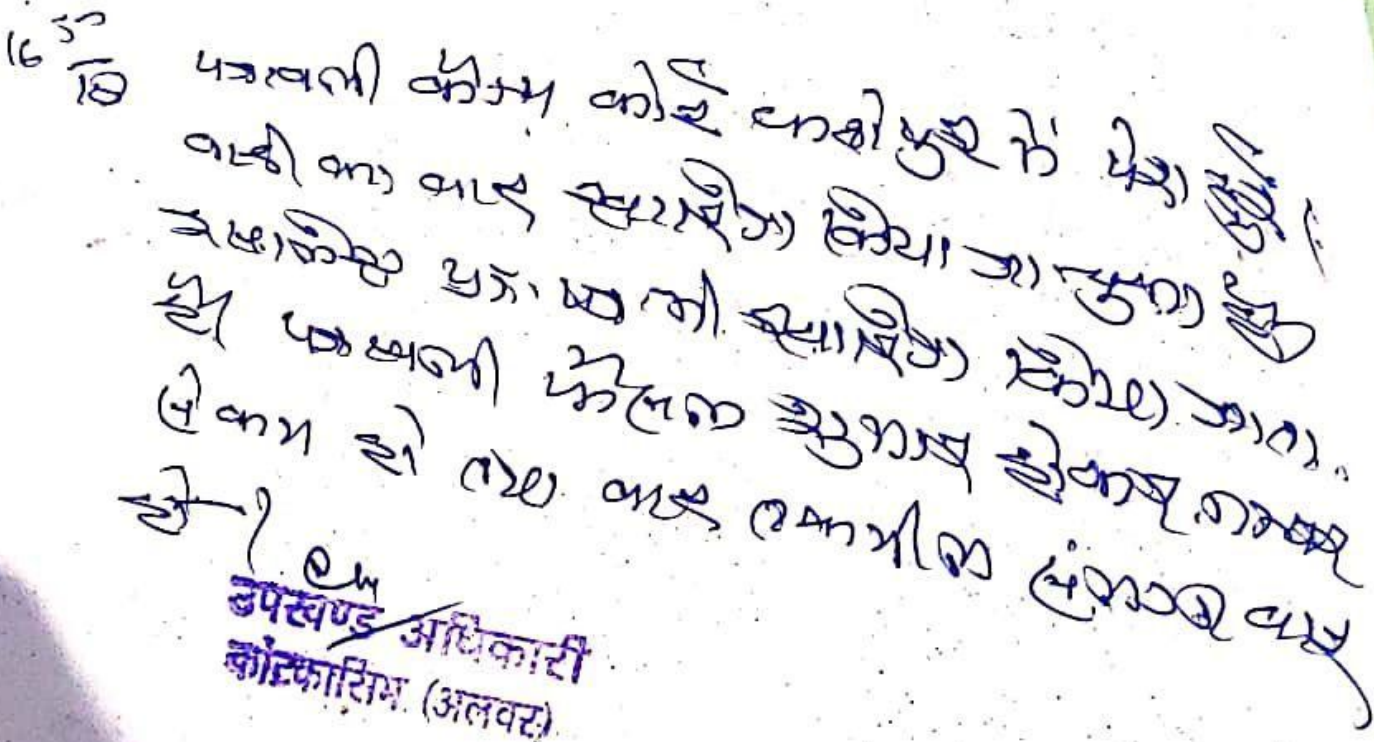 16 5/18 पत्रावली कैम्प कोर्ट में पेश हुई।
वादी का वाद खारिज किया जा चुका है
इसलिए प्रा. पत्र भी खारिज किया जाता
है। पत्रावली फैसल शुमार होकर नम्बर
से कम हो तथा बाद तकमील संलग्न वाद
हो।
उपखण्ड अधिकारी
कोटकासिम (अलवर)